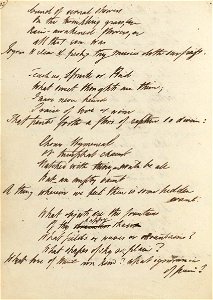 Sound of vernal showers
On the twinkling grass,
Rain-awakened flowers,
all that ever was
Joyous & clear & fresh, thy music doth surpass.
Sprite or Bird
What sweet thoughts are thine;
I have never heard
Praise of love or wine
That panted forth a flood of rapture so divine:
Chorus Hymeneal
Or triumphal chaunt
Matched with thine would be all
But an empty vaunt
A thing wherein we feel there is some hidden
want.
What objects are the fountains
Of thy happy strain
What fields or waves or mountains?
What shapes of sky or plain?
What love of thine own kind? what ignorance
of pain?